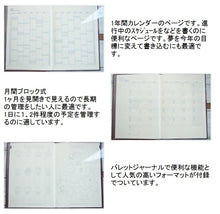 1年間カレンダーのページです。進
行中のスケジュールをなどを書くのに
便利なページです。夢を今年の目
標に変えて書き込むにも最適で
す。
月間ブロック式
1ヶ月を見開きで見えるので長期
の管理をしたい人に最適です。
1日に1、2件程度の予定を管理す
るのに適しています。
バレットジャーナルで便利な機能と
して人気の高いフォーマットが付録
でついています。